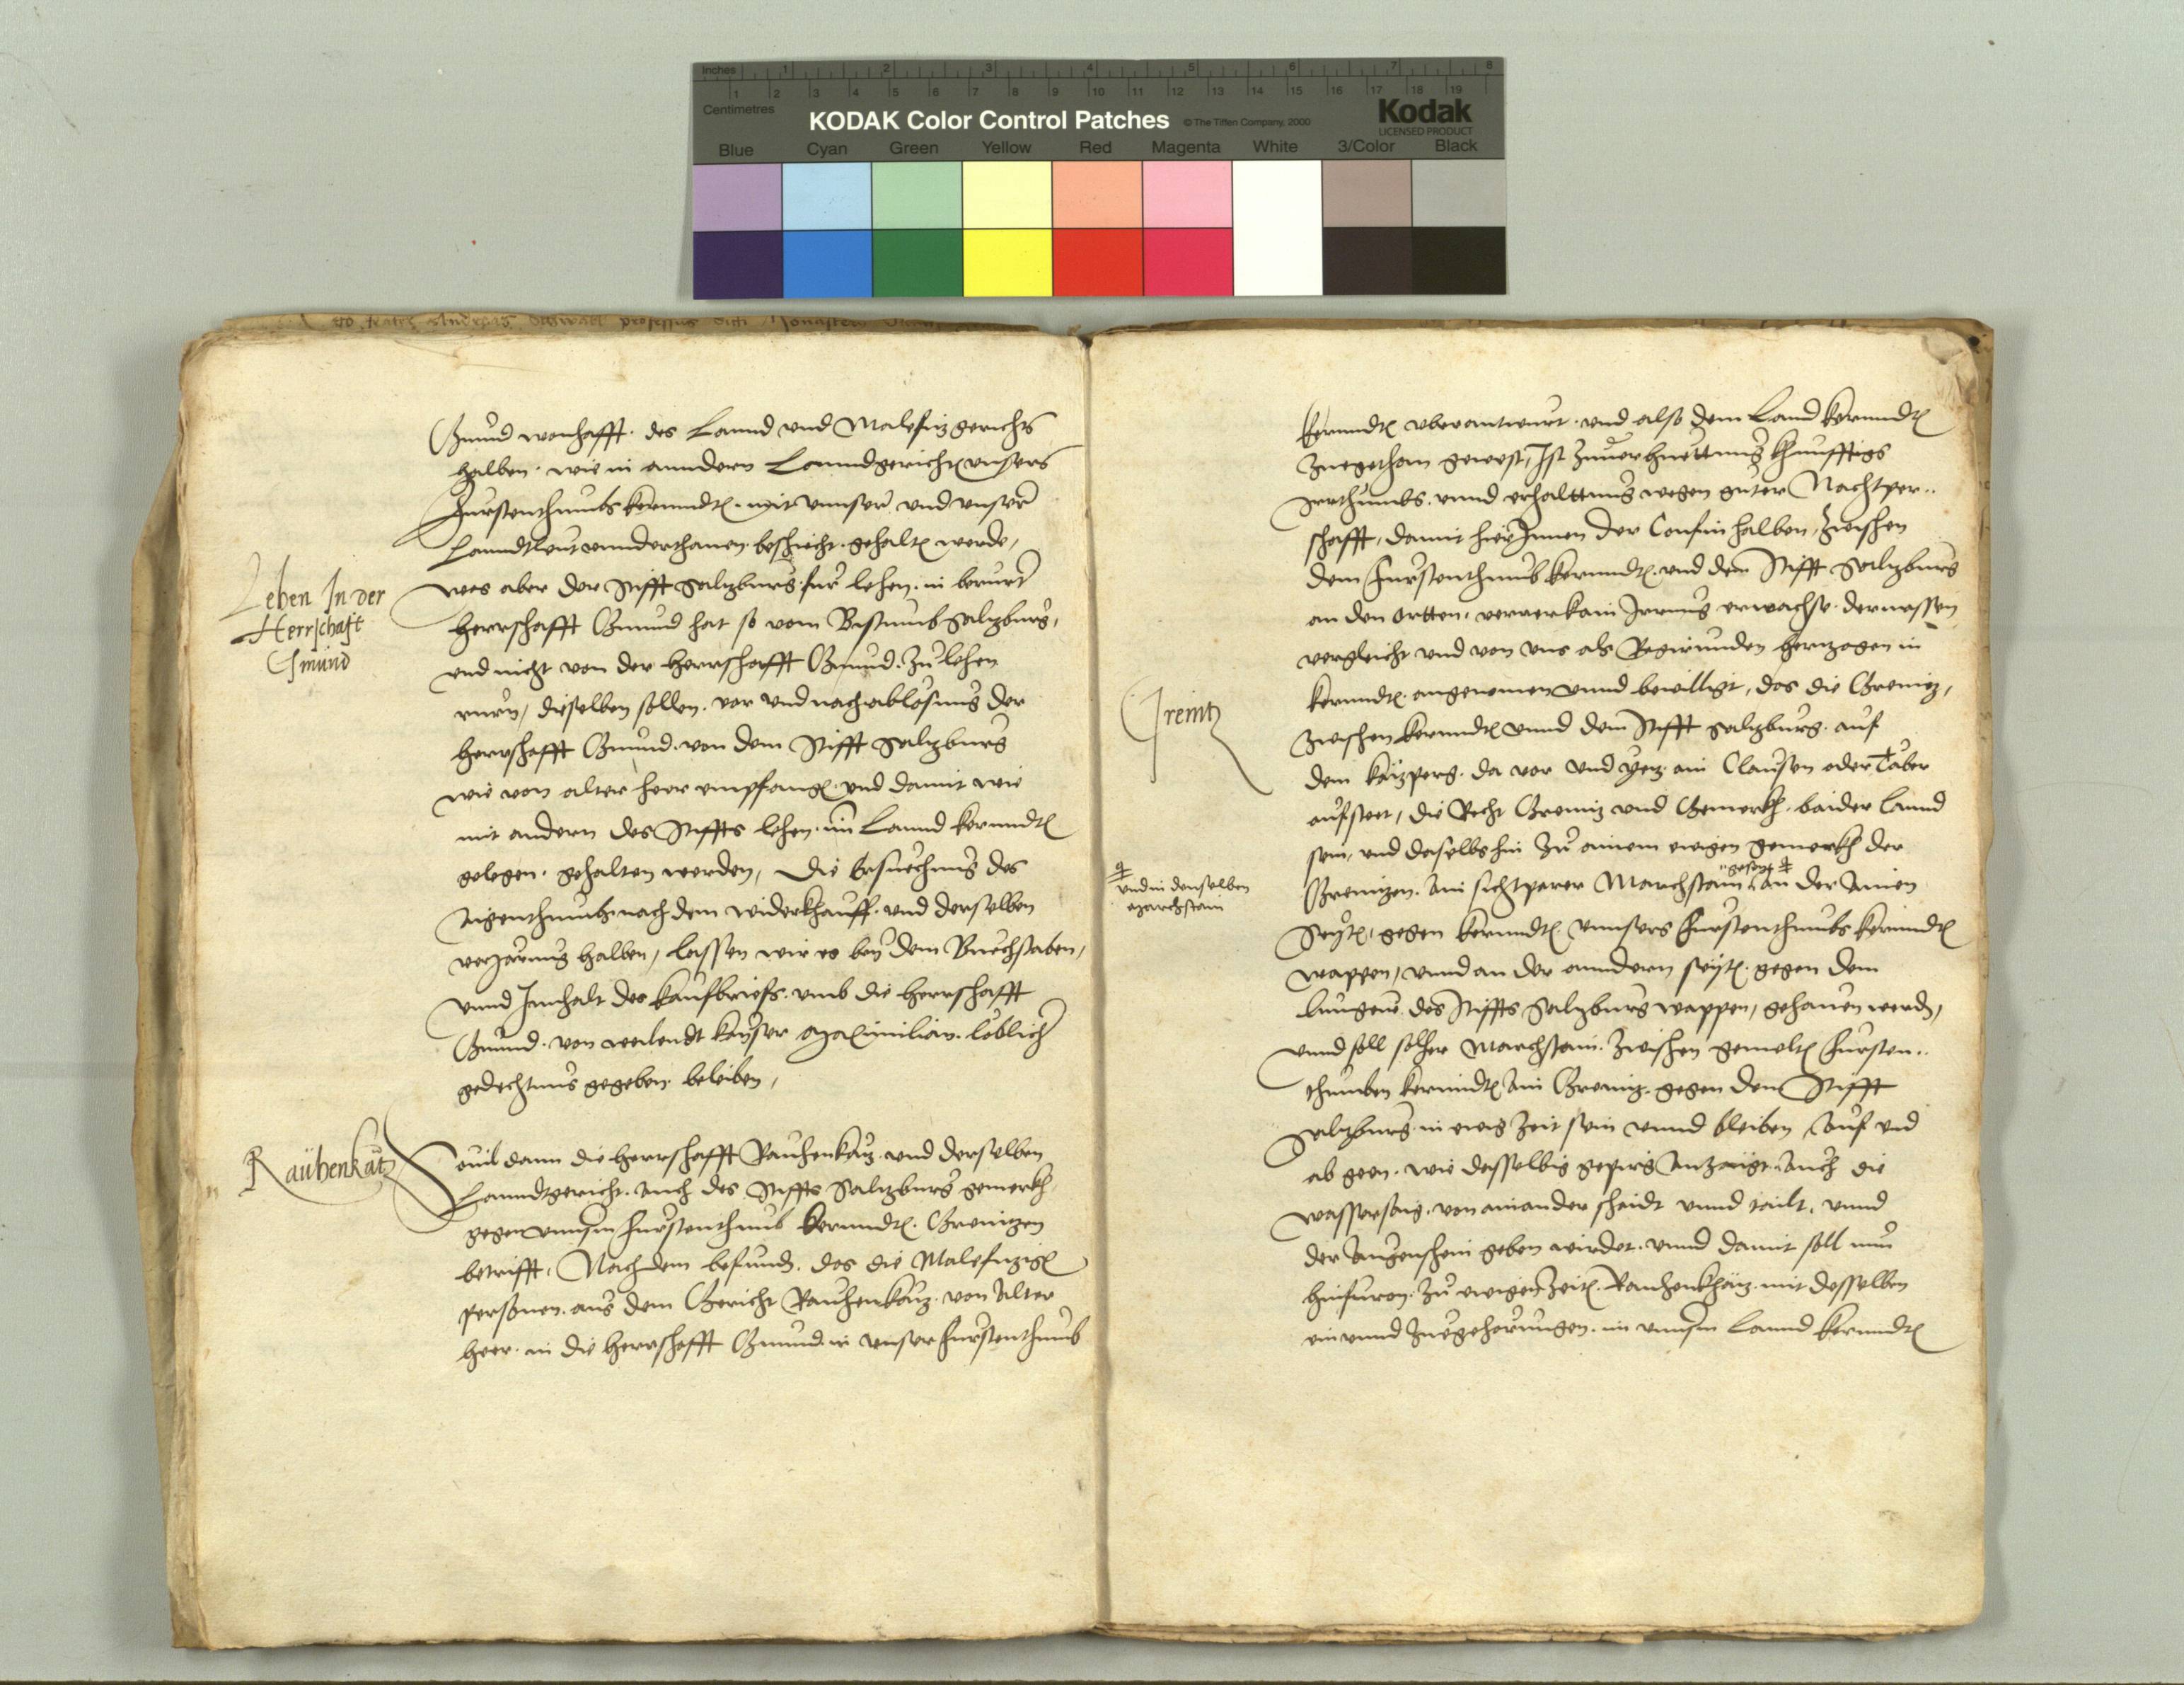 Inches 1 2 3 4 5 6 7 8
Centimetres 1 2 3 4 5 6 7 8 9 10 11 12 13 14 15 16 17 18 19
KODAK Color Control Patches © The Tiffen Company, 2000 Kodak
LICENSED PRODUCT
Blue Cyan Green Yellow Red Magenta White 3/Color Black
Gmund wonhafft. des Lannd vnd Malefizgerichts
halben. wie in anndern Lanndgericht vnsers
Furstenthumbs kernndt. mit vnnser vnd vnser
Lanndtleut vnnderthanen beschicht. gehalt werde,
Lehen In der
Herrschaft
Gmünd
was aber der Stifft Saltzburg fur lehen. in berurt
herrschafft Gmund hat so vom Bistumb Saltzburg,
vnd nicht von der herrschafft Gmund. zu lehen
rurn, dieselben sollen. vor vnd nach ablosung der
herrschafft Gmund. von dem Stifft Saltzburg
wie von alter heer empfang. vnd damit wie
mit andern des Stiffts lehen. im Lannd kernndt
gelegen. gehalten werden, Die besuechung des
Aigenthumbs nach dem widerkhauff. vnd derselben
verjarung halben, lassen wir es bey dem Buechstaben,
vnnd Innhalt des kaufbriefs. vmb die herrschafft
Gmund. von weilendt kayser Maximilian. loblich
gedechtnus gegeben. beleiben,
Raühenkätz
Souil dann die herrschafft Rauhenkatz. vnd derselben
Lanndtgericht. auch des Stiffts Saltzburg gemerkh
gegen vnnserm Furstenthumb kernndt. Grenitzen
betrifft, Nachdem befund. das die Malefitzig
personen. aus dem Gericht Rauhenkatz. von Alter
heer. in die herrschafft Gmund. in vnser Furstenthumb
kernndt vberantwurt. vnd also dem Land kernndt
zuegethan gewest, Ist zuuerhuettung khunfftigs
Irrthumbs. vnnd erhalttung wegen guter Nachtper..
schafft, damit hierInnen der Confin halben, zwischen
dem Furstenthumb kernndt. vnd dem Stifft Saltzburg
an den ortten. verrer kain Irrung erwachse. dermassen
vergleicht vnd von vns als Regirunden hertzogen in
Grenitz
kernndt. angenomen vnnd bewilligt, das die Grenitz,
zwischen kernndt vnnd dem Stifft Saltzburg. auf
dem kätzperg. da vor vnd yetz ain Clausen oder Taber
aufsteet, die Recht Grenitz vnd Gemerkh. baider Lannd
sein, vnd daselbs hin zu ainem ewigen gemerkh der
vnd in denselben
marchstain
Grenitzen. Ain sichtparer Marchstain gesetzt An der Ainen
Seyt, gegen kernndt vnnsers Furstenthumbs kernndt
wappen, vnnd an der anndern seyt. gegen dem
Lungew. des Stiffts Saltzburg wappen, gehauen werd,
vnnd soll solher Marchstain. zwischen gemelt Fursten..
thumben kernndt Ain Grenitz. gegen dem Stifft
Saltzburg. in ewig zeit sein vnnd bleiben, Auf vnd
ab geen. wie dasselbig gepirg Anzaigt. Auch die
wassersaig. von ainander schaidt vnnd tailt. vnnd
der Augenschein geben wirdet. vnnd damit soll nun
hinfuron. zu ewigen zeit. Rauhenkhätz. mit desselben
ein vnnd zuegehorungen. in vnnserm Lannd kernndt